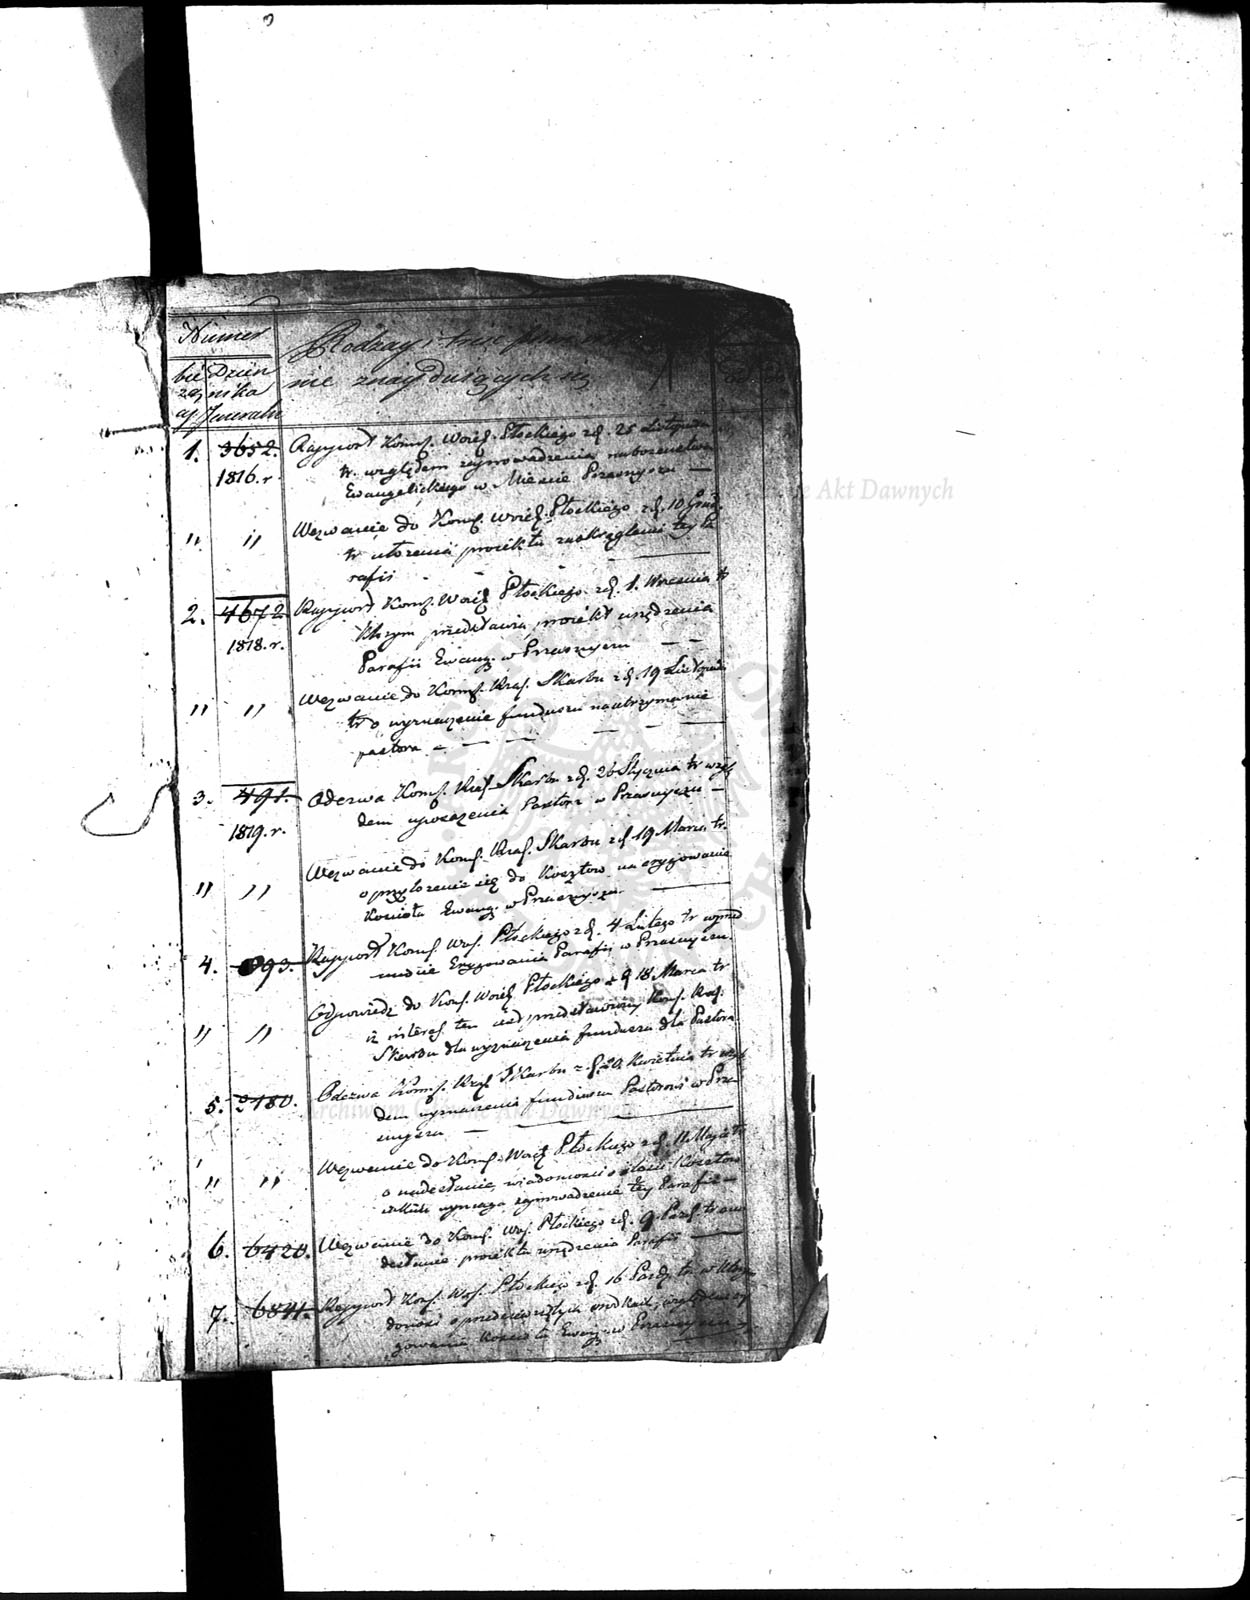 Numer
Rodzay i treść
bie Dzien
nie znayduiących się
żą nika
cy Jeneraln
1. 3652. Rapport Komis. Woiew. Płockiego z d. 25 Listopada
1816. r. tr. względem zaprowadzenia nabożeństwa
Ewangelickiego w Mieście Przasnyszu —
" " Wezwanie do Komis. Woiew. Płockiego z d. 10 Grud.
tr. ułożenia proiektu zaokrąglenia tey Pa
rafii
2. 4672 Rapport Komis. Woiew. Płockiego z d. 1. Września tr
1818. r. którym przedstawia proiekt urządzenia
Parafii Ewang. w Przasnyszu — —
" " Wezwanie do Komis. Rząd. Skarbu z d. 19 Listopada
tr. o wyznaczenie funduszu na utrzymanie
pastora — — — —
3. 491. Odezwa Komis. Rząd. Skarbu z d. 26 Stycznia tr wzglę
1819. r. dem uposażenia Pastora w Przasnyszu —
" " Wezwanie do Komis. Rząd. Skarbu z d. 19 Marca tr.
o przyłożenie się do Kosztów na erygowanie
Kościoła Ewang. w Przasnyszu —
4. 893. Rapport Komis. Woj. Płockiego z d. 4 Lutego tr w przed
miocie Erygowania Parafii w Przasnyszu.
" " Odpowiedź do Komis. Woiew. Płockiego z d 18 Marca tr
iż interes ten iest przedstawiony Komis. Rząd.
Skarbu dla wyznaczenia funduszu dla Pastora
5. 2180. Odezwa Komis. Rząd Skarbu z d. 20. Kwietnia tr wzglę
dem wyznaczenia funduszu Pastorowi w Prza
snyszu —
" " Wezwanie do Komis. Woiew Płockiego z d. 11. Maja tr
o nadesłanie wiadomości o ilości Kosztów
iakich wymaga zaprowadzenie tey Parafii —
6. 6420. Wezwanie do Komis. Woj. Płockiego z d. 9 Paźd. tr o na
desłanie proiektu urządzenia Parafii —
7. 6841. Rapport Komis. Woj. Płockiego z d. 16 Paźdz. tr. w którym
donosi o przedsięwziętych środkach względem ery
gowania Kościoła Ewang. w Przasnyszu
Archiwum Główne Akt Dawnych